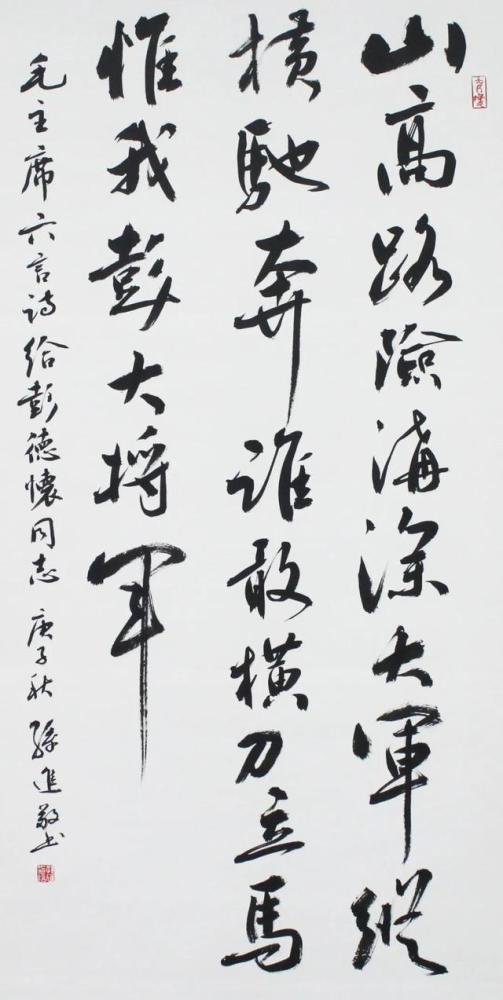 山高路險溝深大軍縱
横馳奔誰敢横刀立馬
惟我彭大将军
毛主席六言诗给彭德懷同志 庚子秋 孫進敬书